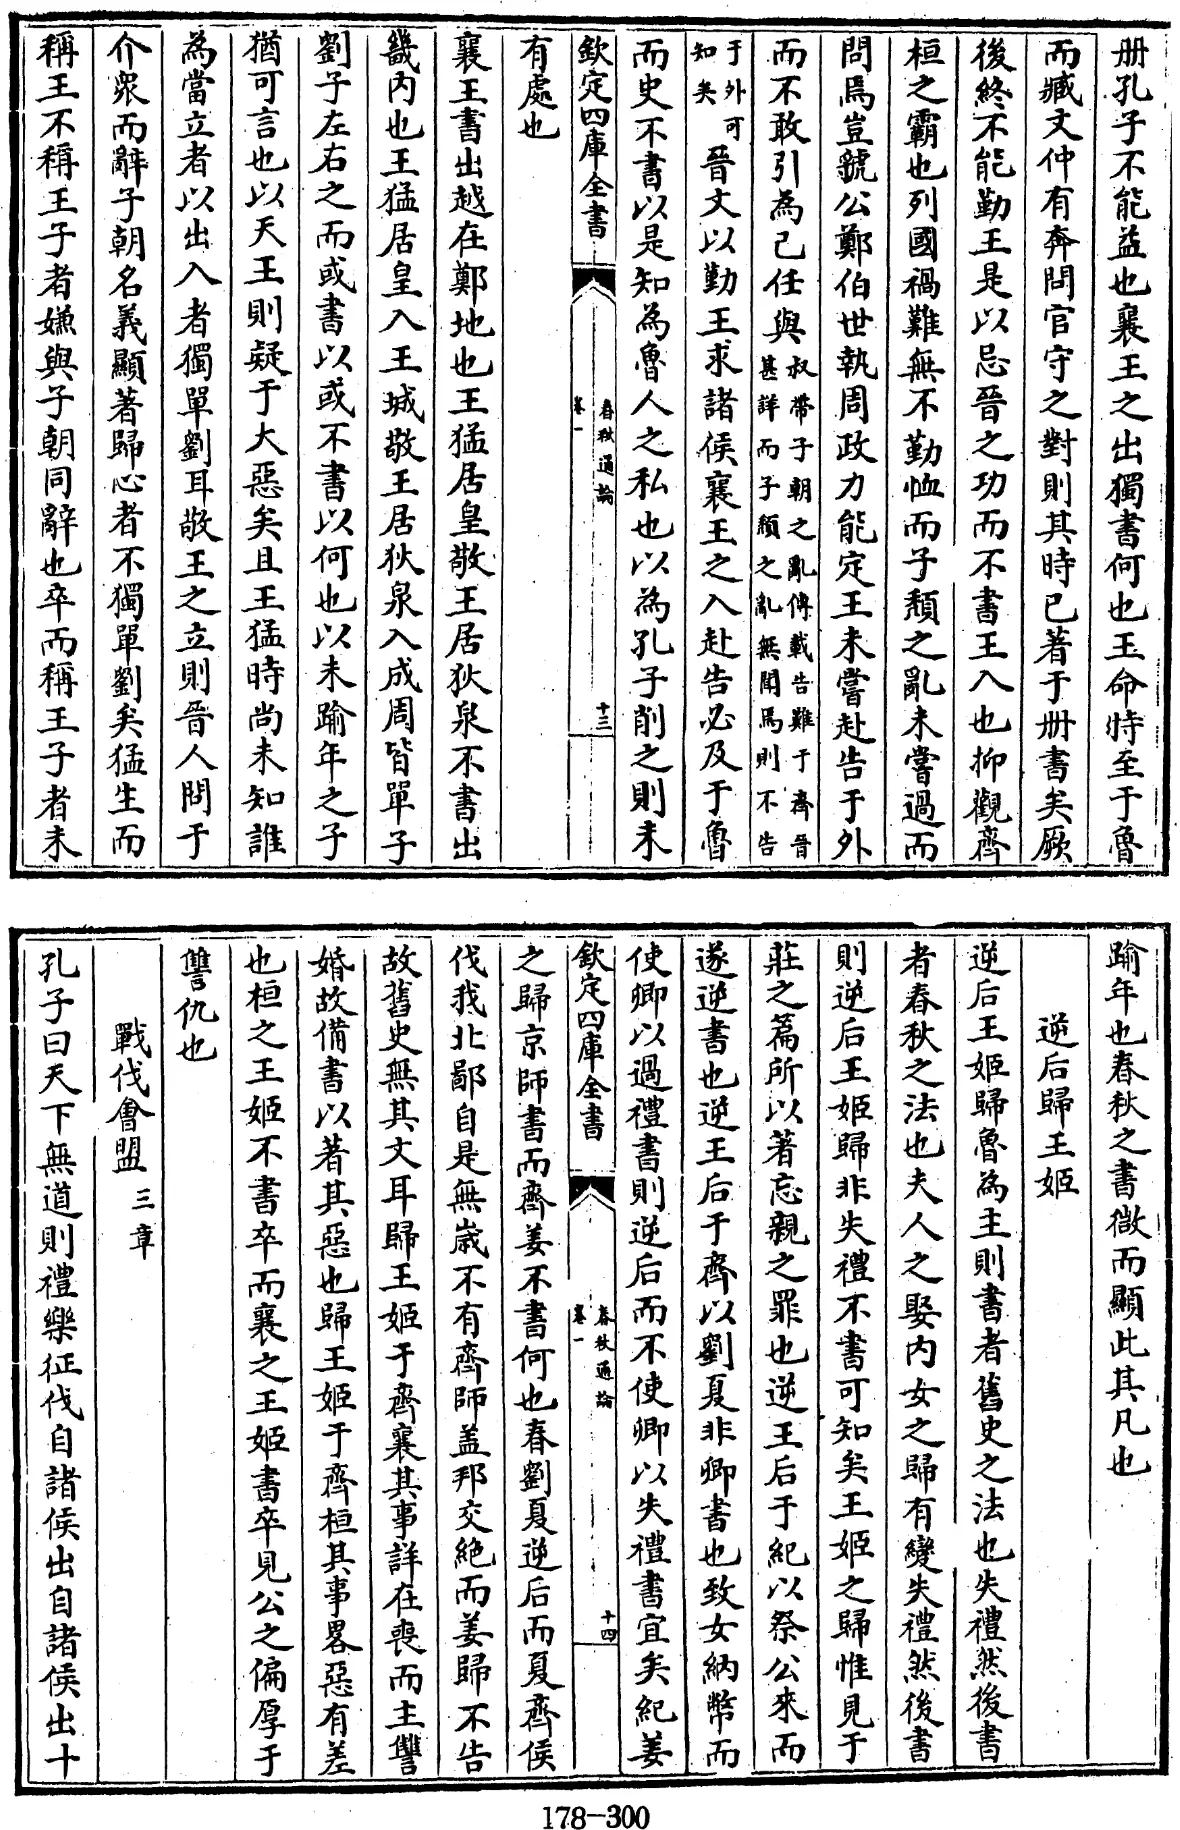 册孔子不能益也襄王之出獨書何也王命時至于魯
而臧文仲有奔問官守之對則其時已著于册書矣厥
後終不能勤王是以忌晉之功而不書王入也抑觀齊
桓之霸也列國禍難無不勤恤而子頽之亂未嘗過而
問焉豈虢公鄭伯世執周政力能定王未嘗赴告于外
而不敢引為己任與叔帶子朝之亂傳載告難于齊晉
甚詳而子頽之亂無聞焉則不告
于外可
知矣晉文以勤王求諸侯襄王之入赴告必及于魯
而史不書以是知為魯人之私也以為孔子削之則未
欽定四庫全書
春秋通論
卷一
十三
有處也
襄王書出越在鄭地也王猛居皇敬王居狄泉不書出
畿内也王猛居皇入王城敬王居狄泉入成周皆單子
劉子左右之而或書以或不書以何也以未踰年之子
猶可言也以天王則疑于大惡矣且王猛時尚未知誰
為當立者以出入者獨單劉耳敬王之立則晉人問于
介衆而辭子朝名義顯著歸心者不獨單劉矣猛生而
稱王不稱王子者嫌與子朝同辭也卒而稱王子者未
踰年也春秋之書微而顯此其凡也
逆后歸王姬
逆后王姬歸魯為主則書者舊史之法也失禮然後書
者春秋之法也夫人之娶内女之歸有變失禮然後書
則逆后王姬歸非失禮不書可知矣王姬之歸惟見于
莊之篇所以著忘親之罪也逆王后于紀以祭公來而
遂逆書也逆王后于齊以劉夏非卿書也致女納幣而
使卿以過禮書則逆后而不使卿以失禮書宜矣紀姜
欽定四庫全書
春秋通論
卷一
十四
之歸京師書而齊姜不書何也春劉夏逆后而夏齊侯
伐我北鄙自是無歲不有齊師盖邦交絶而姜歸不告
故舊史無其文耳歸王姬于齊襄其事詳在喪而主讐
婚故備書以著其惡也歸王姬于齊桓其事畧惡有差
也桓之王姬不書卒而襄之王姬書卒見公之偏厚于
讐仇也
戰伐會盟三章
孔子曰天下無道則禮樂征伐自諸侯出自諸侯出十
178-300